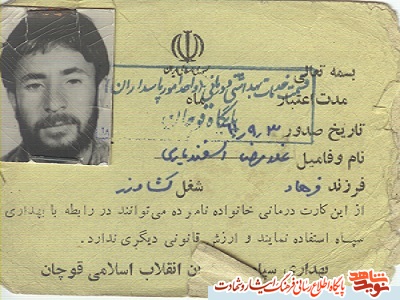 بسمه تعالی
جمهوری اسلامی ایران
قسمت خدمات بهداشتی ودرمانی (واحد امور پاسداران)
پایگاه قوچان
مدت اعتبار ماه
تاریخ صدور ۶۰٫۹٫۳
نام وفامیل غلامرضا اسفندیاری
فرزند فرهاد شغل کشاورز
از این کارت درمانی خانواده نامبرده می‌توانند در رابطه با بهداری
سپاه استفاده نمایند و ارزش قانونی دیگری ندارد.
بهداری سپاه ن انقلاب اسلامی قوچان
نوید شاهد
پایگاه اطلاع رسانی فرهنگ ایثار و شهادت